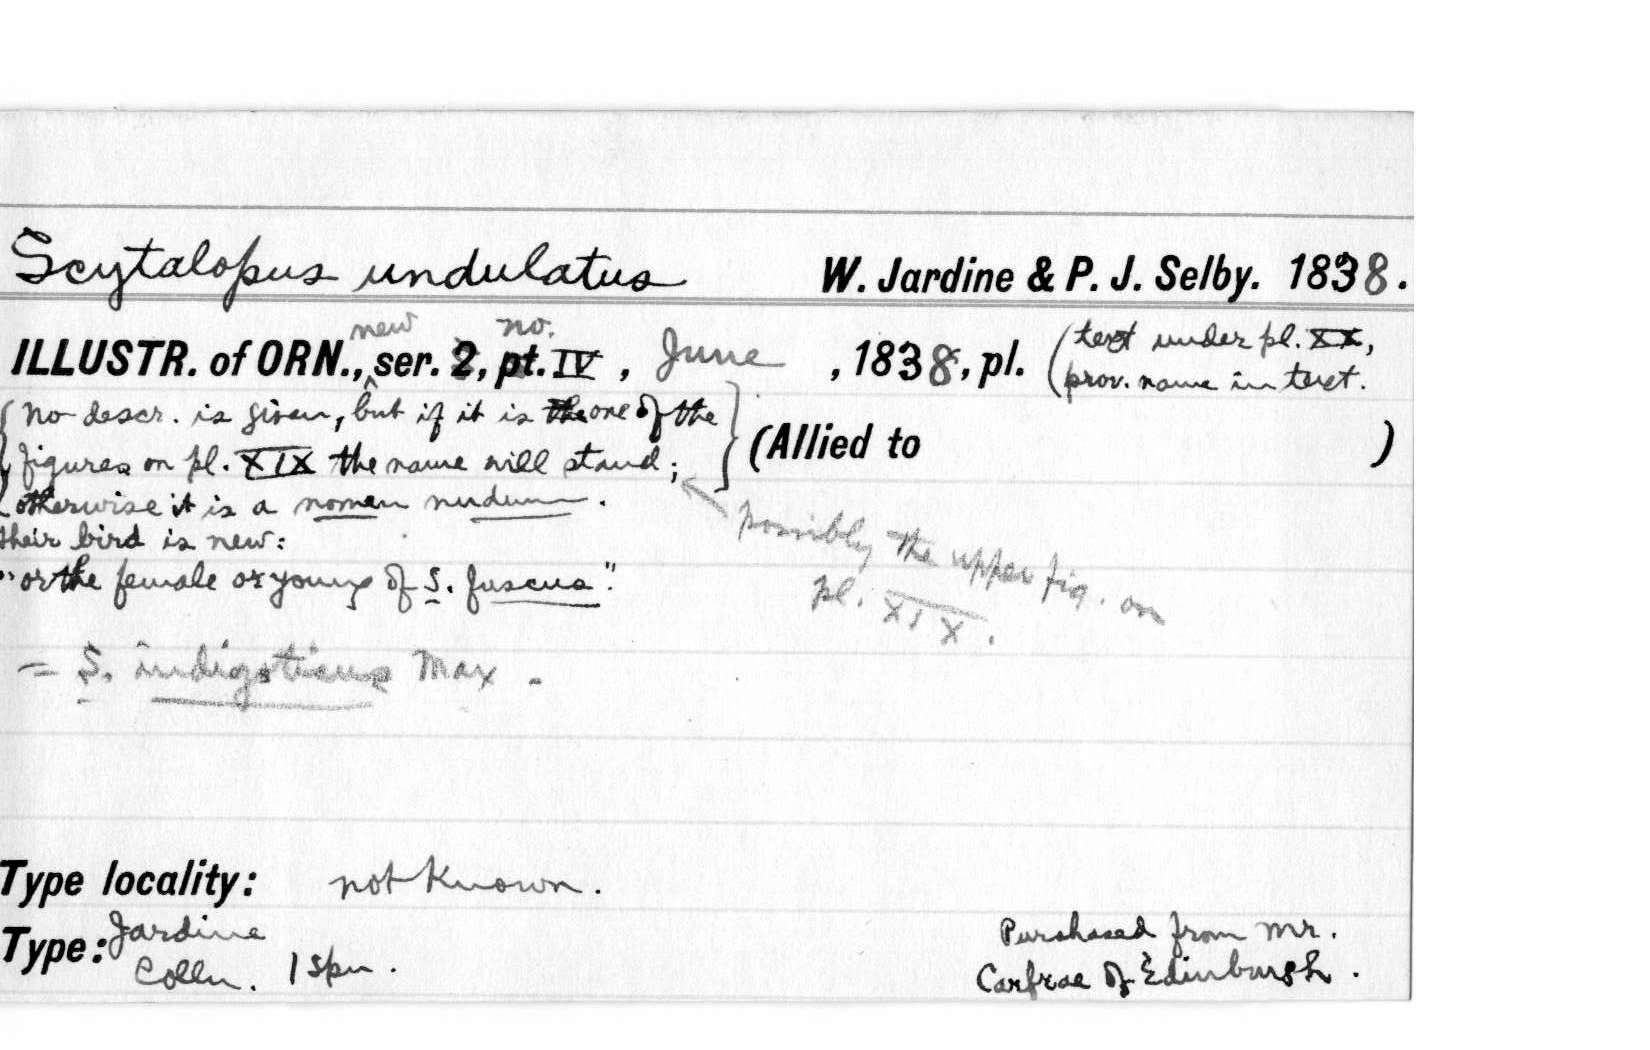 Scytalopus undulatus W. Jardine & P. J. Selby. 1838.
new no.
ILLUSTR. of ORN., ser. 2, pt. IV, June, 1838, pl. (text under pl. XX,
prov. name in text.
(No descr. is given, but if it is the one of the
figures on pl. XIX the name will stand; (Allied to )
otherwise it is a nomen nudum.
possibly the upper fig. on
pl. XIX.
their bird is new:
"or the female or young of S. fuscus".
= S. indigoticus Max.
Type locality: not known.
Type: Jardine
Colln. 1 spn.
Purchased from Mr.
Carfrae of Edinburgh.